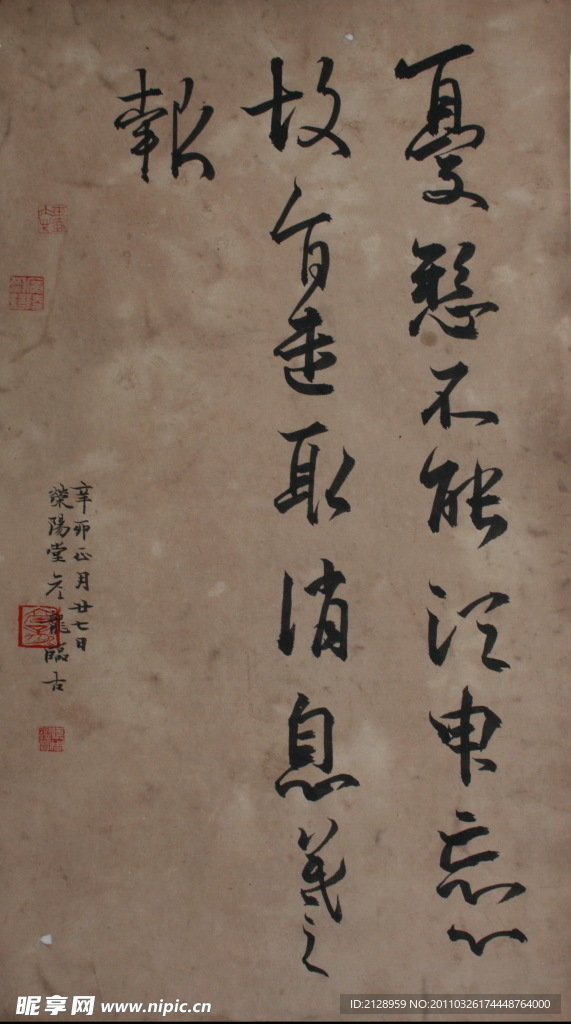 憂懸不能須臾忘心
故旨遣取消息羲之
報
辛卯正月廿七日
榮陽堂龍臨古
昵享网 www.nipic.cn
ID:2128959 NO:20110326174448764000